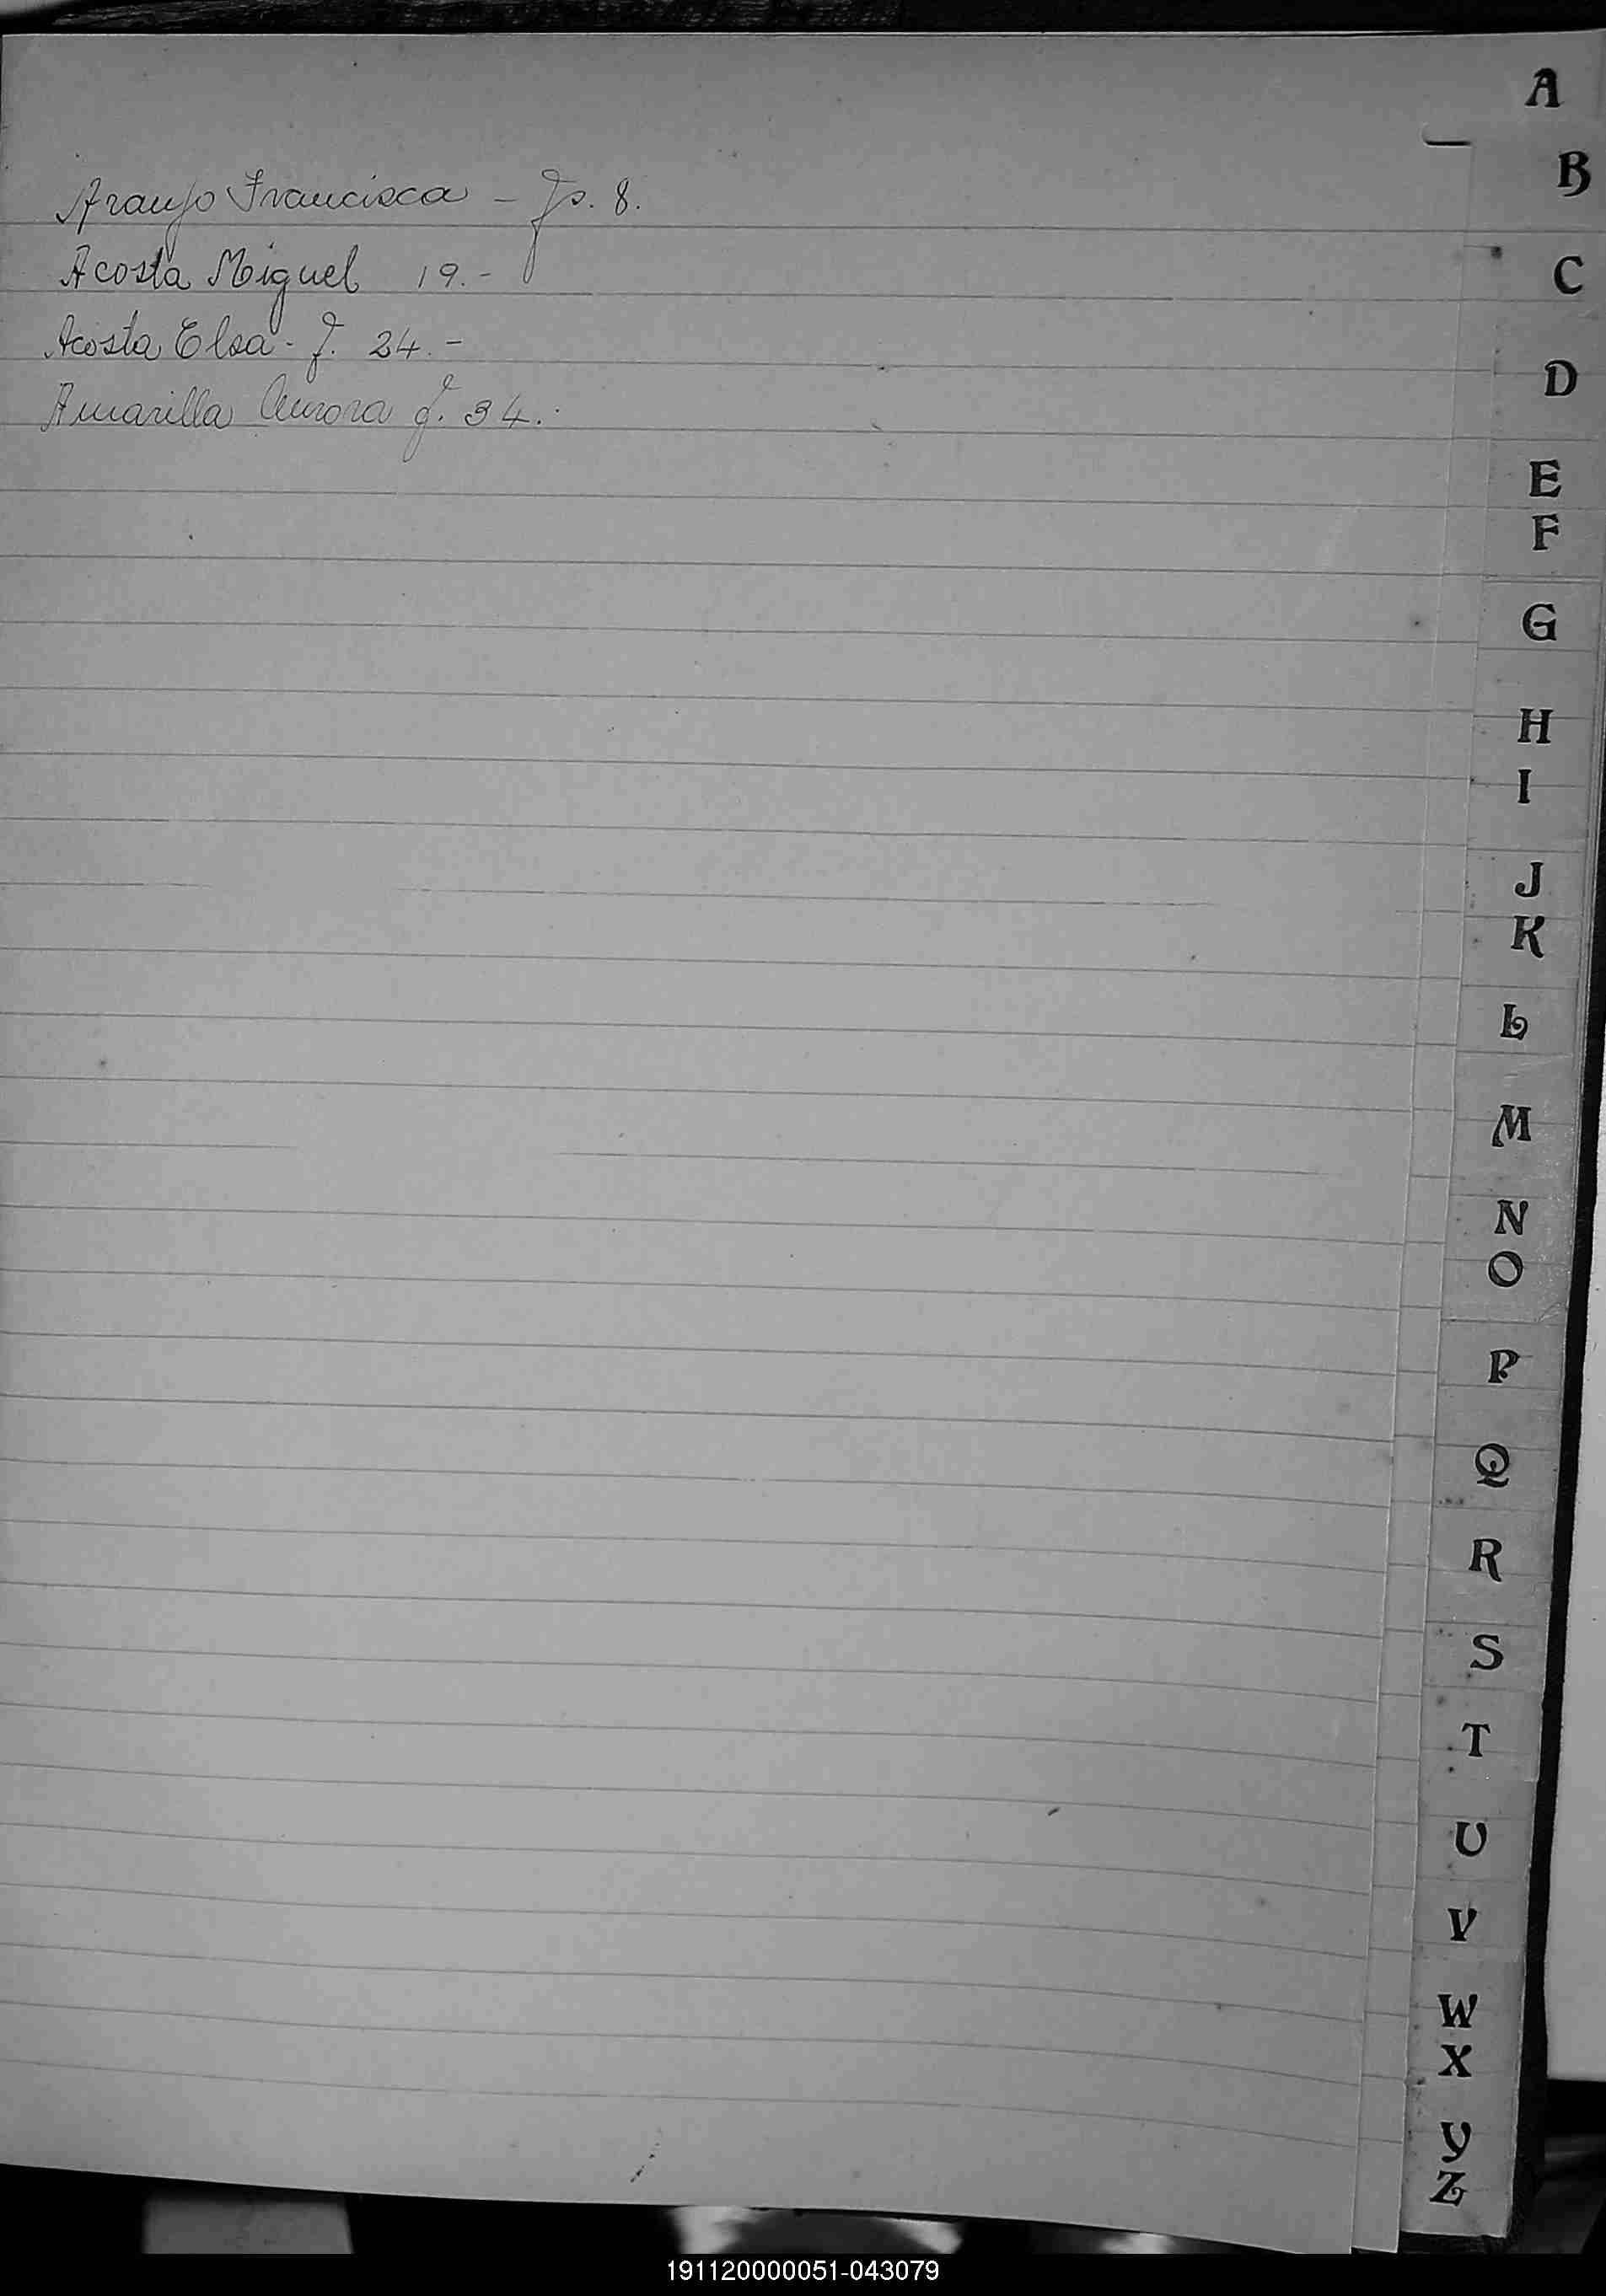 Araujo Francisca - Fs. 8.
Acosta Miguel 19.-
Acosta Elsa - F. 24.-
Amarilla Aurora f. 34.-
A
B
C
D
E
F
G
H
I
J
K
L
M
N
O
P
Q
R
S
T
U
V
W
X
Y
Z
191120000051-043079